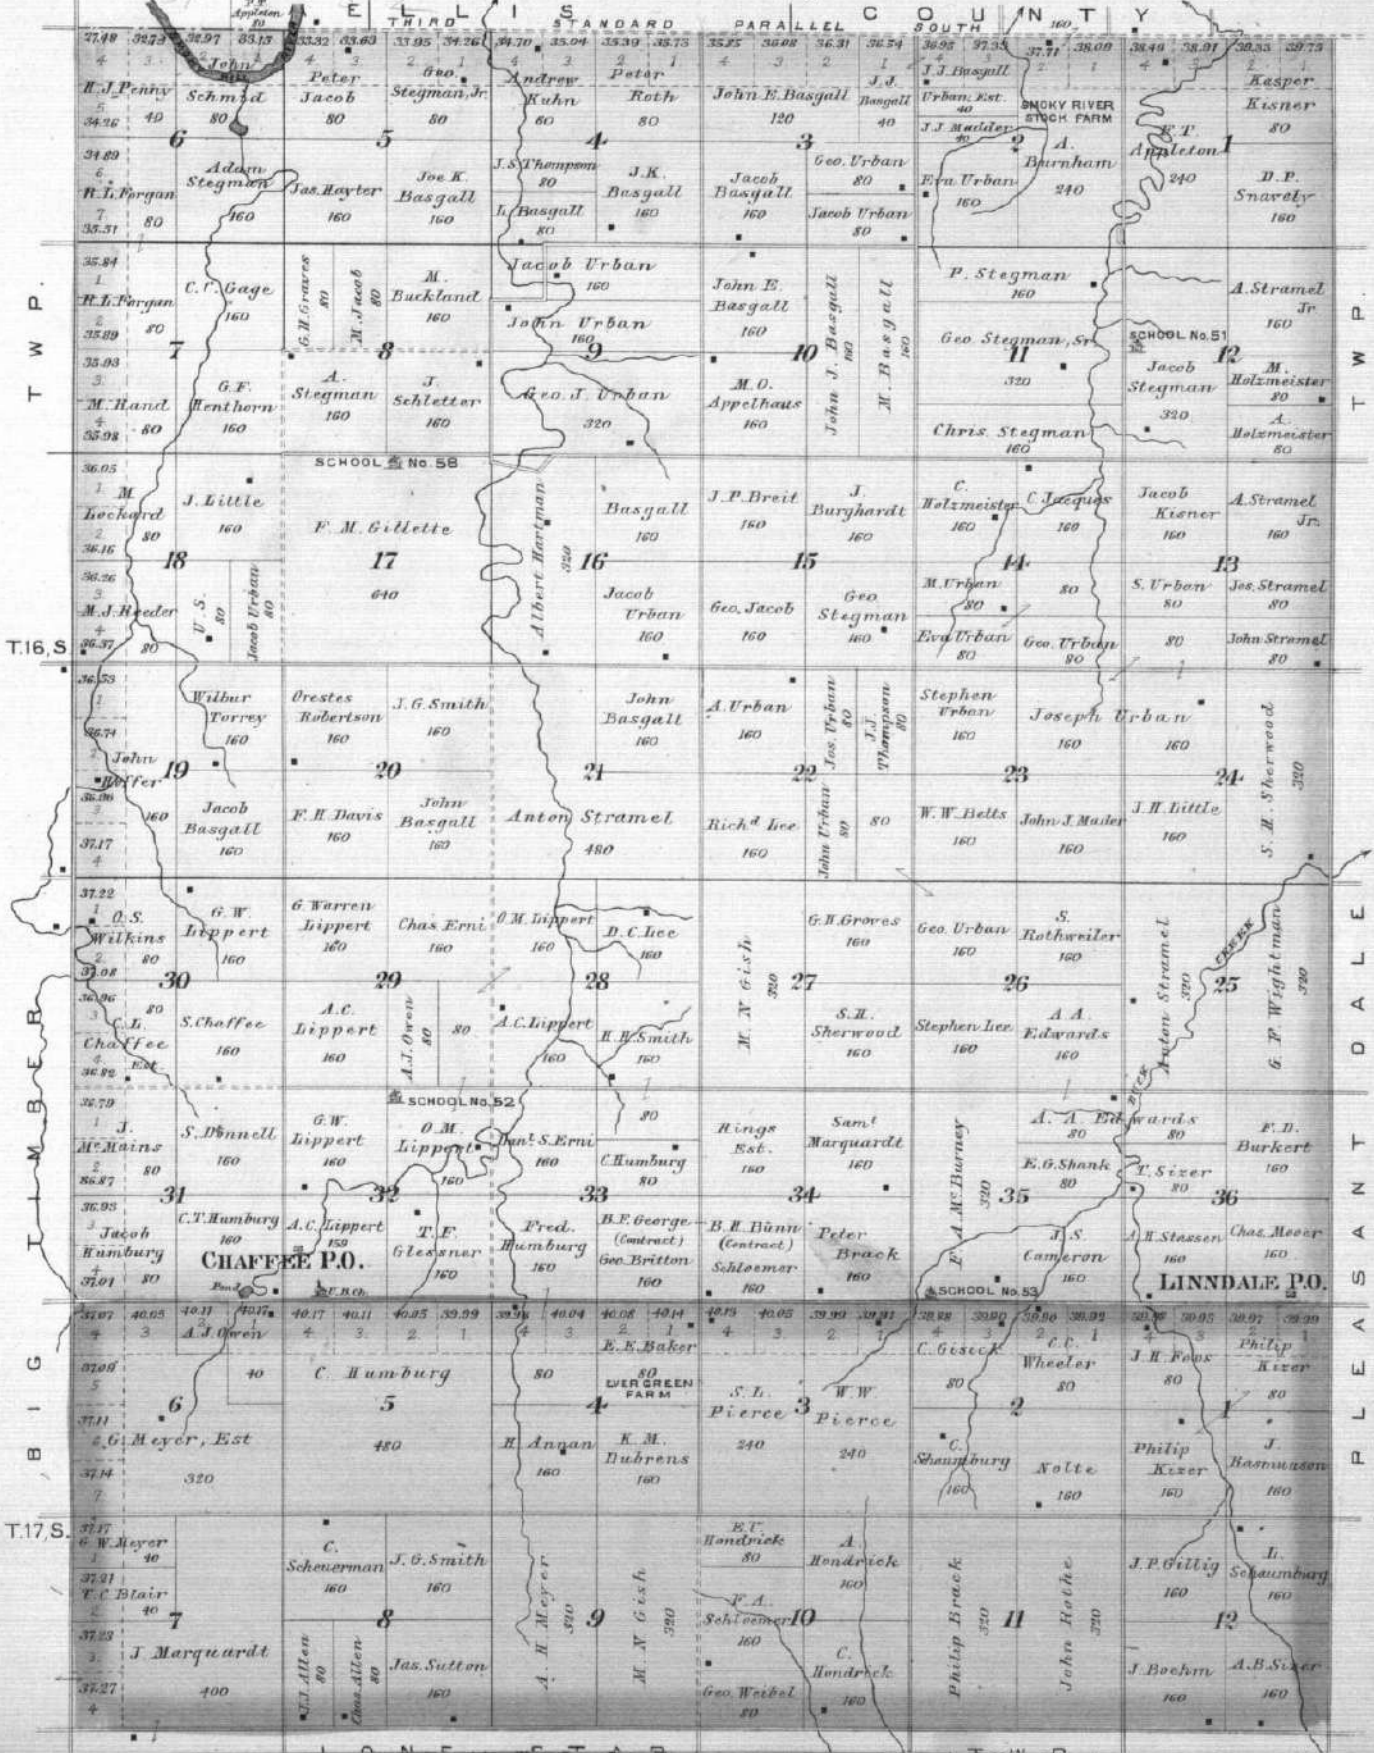 Appleton
80
ELLIS COUNTY
THIRD STANDARD PARALLEL SOUTH
160
27.48 32.79 32.97 33.15 33.32 33.63 33.95 34.26 34.70 35.04 35.39 35.73 35.85 36.08 36.31 36.54 36.95 37.33 37.71 38.09 38.49 38.91 39.33 39.75
H.J. Penny
40
34.26
John
Schmid
80
6
Peter
Jacob
80
Geo.
Stegman, Jr.
80
5
Andrew
Kuhn
80
Peter
Roth
80
4
John E. Basgall
120
J.J.
Basgall
40
3
J.J. Basgall
Urban, Est.
40
J.J. Madder
40
SMOKY RIVER
STOCK FARM
2
A.
Burnham
240
F.T.
Appleton
240
1
Kasper
Kisner
80
34.89
R.L. Forgan
80
35.31
Adam
Stegman
160
Jas. Hayter
160
Joe K.
Basgall
160
J.S. Thompson
80
L. Basgall
80
J.K.
Basgall
160
Jacob
Basgall
160
Geo. Urban
80
Jacob Urban
80
Eva Urban
160
D.P.
Snavely
160
TWP.
35.84
R.L. Forgan
80
35.89
C.C. Gage
160
G.H. Graves
80
M. Jacob
80
M.
Buckland
160
Jacob Urban
160
John Urban
160
John E.
Basgall
160
John J. Basgall
160
M. Basgall
160
P. Stegman
160
Geo. Stegman, Sr.
320
SCHOOL No. 51
A. Stramel
Jr
160
TWP.
7
8
9
10
11
12
35.93
M. Rand
80
35.98
G.F.
Henthorn
160
A.
Stegman
160
J.
Schletter
160
Geo. J. Urban
320
M.O.
Appelhaus
160
Chris. Stegman
160
Jacob
Stegman
320
M.
Holzmeister
80
A.
Holzmeister
80
SCHOOL No. 58
36.05
M.
Lockard
80
36.16
J. Little
160
F.M. Gillette
640
Albert Hartman
320
Basgall
160
J.P. Breit
160
J.
Burghardt
160
C.
Holzmeister
160
C. Jacques
160
Jacob
Kisner
160
A. Stramel
Jr.
160
18
17
16
15
14
13
36.26
M.J. Reeder
36.37
80
U.S.
80
Jacob Urban
80
Jacob
Urban
160
Geo. Jacob
160
Geo
Stegman
160
M. Urban
80
Eva Urban
80
80
Geo. Urban
80
S. Urban
80
80
Jos. Stramel
80
John Stramel
80
T.16, S.
36.53
36.74
John
Hoffer
160
36.96
37.17
Wilbur
Torrey
160
Orestes
Robertson
160
J.G. Smith
160
John
Basgall
160
A. Urban
160
Jos. Urban
80
J.J.
Thompson
80
Stephen
Urban
160
Joseph Urban
160
160
S.H. Sherwood
320
19
20
21
22
23
24
Jacob
Basgall
160
F.H. Davis
160
John
Basgall
160
Anton Stramel
480
Richd Lee
160
John Urban
80
80
W.W. Betts
160
John J. Mader
160
J.H. Little
160
37.22
O.S.
Wilkins
80
37.08
G.W.
Lippert
160
G. Warren
Lippert
160
Chas. Erni
160
O.M. Lippert
160
D.C. Lee
160
M.N. Gish
320
G.H. Groves
160
Geo. Urban
160
S.
Rothweiler
160
Anton Stramel
320
CREEK
G.F. Wightman
320
30
29
28
27
26
25
36.96
80
C.L.
Chaffee
Est.
36.82
S. Chaffee
160
A.C.
Lippert
160
A.J. Owen
80
80
A.C. Lippert
160
H.H. Smith
160
S.H.
Sherwood
160
Stephen Lee
160
A.A.
Edwards
160
BUCK
SCHOOL No. 52
36.79
J.
McMains
80
36.87
S. Donnell
160
G.W.
Lippert
160
O.M.
Lippert
160
Danl. S. Erni
160
80
C. Humburg
80
Rings
Est.
160
Saml
Marquardt
160
F.A. McBurney
320
A.A. Edwards
80 80
E.G. Shank
80
T. Sizer
80
F.D.
Burkert
160
31
32
33
34
35
36
36.95
Jacob
Humburg
80
37.01
C.T. Humburg
160
CHAFFEE P.O.
Pond
A.C. Lippert
159
U.B. Ch.
T.F.
Glessner
160
Fred.
Humburg
160
B.F. George
(Contract)
Geo. Britton
160
B.H. Bunn
(Contract)
Schloemer
160
Peter
Brack
160
SCHOOL No. 53
J.S.
Cameron
160
A.H. Stassen
160
Chas. Meeer
160
LINNDALE P.O.
BIG TIMBER
PLEASANT DALE
37.07 40.05 40.11 40.17 40.17 40.11 40.05 39.99 39.98 40.04 40.08 40.14 40.13 40.05 39.99 39.91 39.88 39.90 39.90 39.92 39.96 39.95 39.97 39.99
A.J. Owen
37.09
40
C. Humburg
480
80
E.E. Baker
80
EVERGREEN
FARM
S.L.
Pierce
240
W.W.
Pierce
240
C. Gisick
80
C.C.
Wheeler
80
J.H. Foos
80
Philip
Kizer
80
6
5
4
3
2
1
37.11
G. Meyer, Est
37.14
320
H. Annan
160
K.M.
Dubrens
160
C.
Schaumburg
160
Nolte
160
Philip
Kizer
160
J.
Rasmuason
160
T.17, S.
37.17
G.W. Meyer
40
37.21
T.C. Blair
40
C.
Scheuerman
160
J.G. Smith
160
A.H. Meyer
320
M.N. Gish
320
E.C.
Hondrick
80
A.
Hondrick
160
F.A.
Schloemer
160
Philip Brack
320
John Rothe
320
J.P. Gillig
160
L.
Schaumburg
160
7
8
9
10
11
12
37.23
J. Marquardt
37.27
400
J.J. Allen
80
Chas. Allen
80
Jas. Sutton
160
Geo. Weibel
80
C.
Hondrick
160
J. Boehm
160
A.B. Sizer
160
LONE STAR TWP.